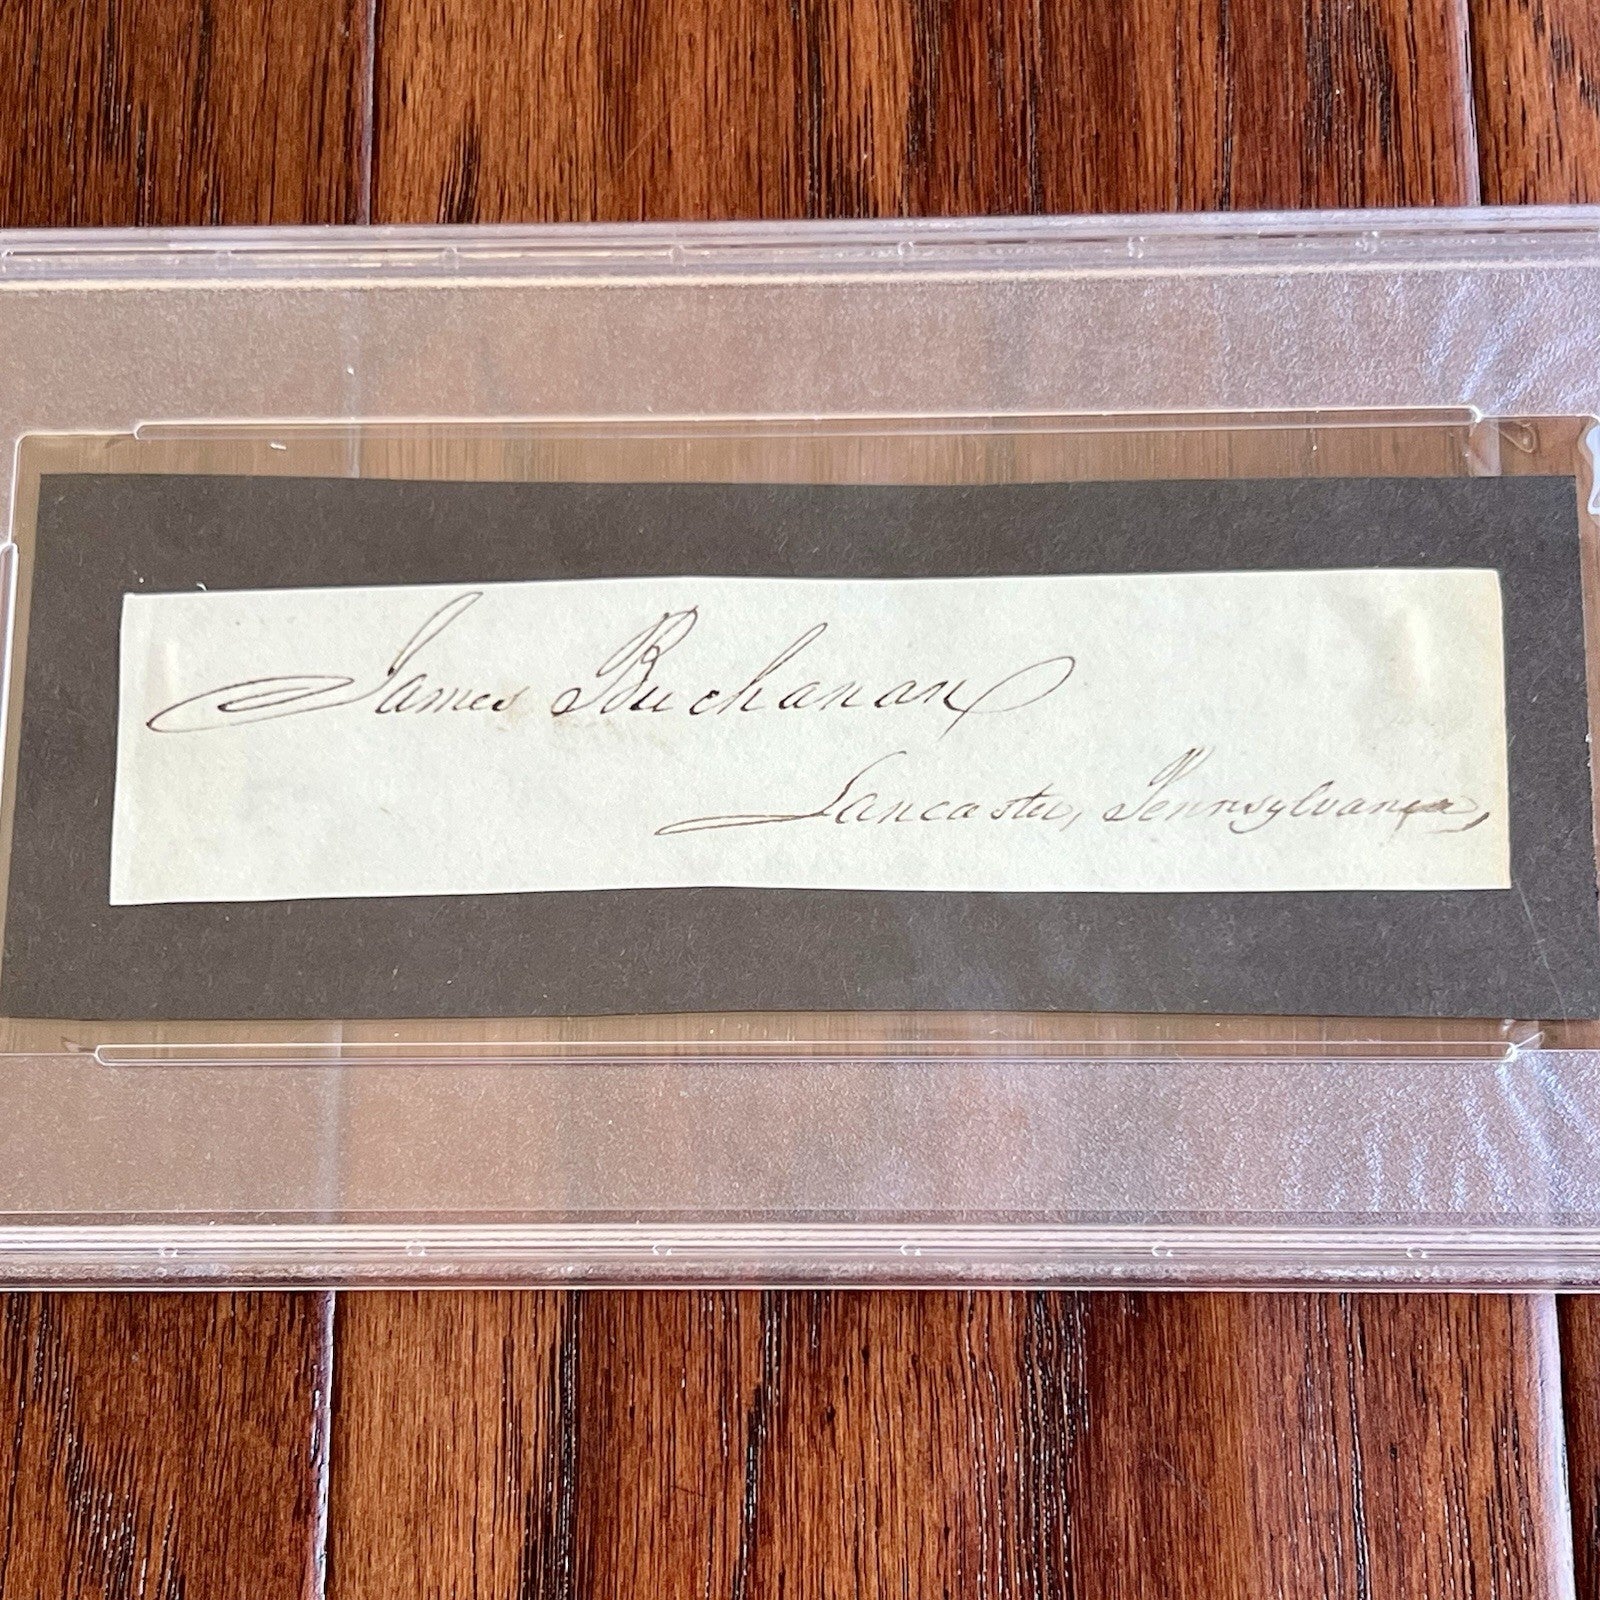 James Buchanan
Lancaster, Pennsylvania,